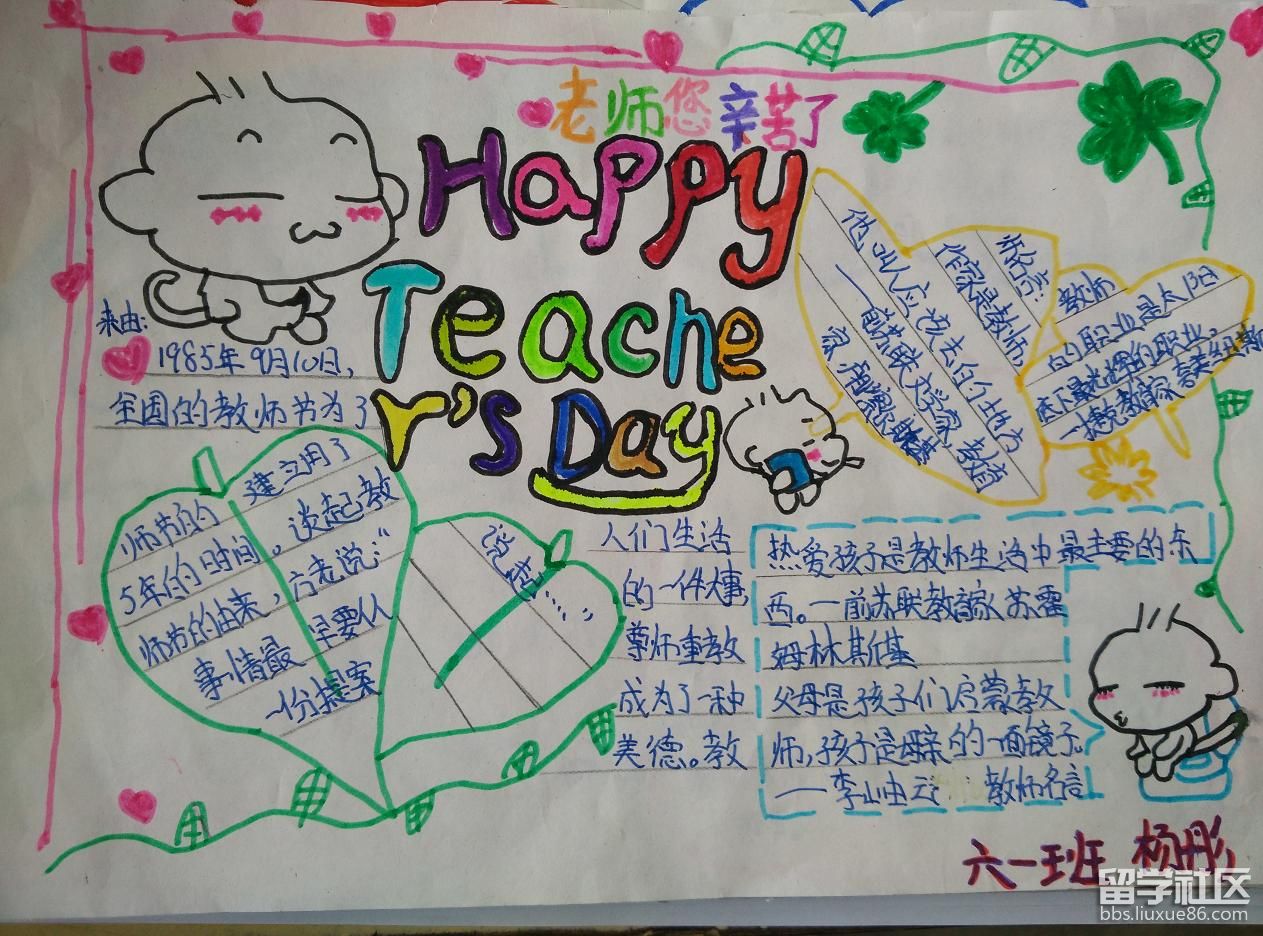 老师您辛苦了
Happy
Teache
r's Day
来由:
1985年9月10日,
全国的教师节为了
人们生活
的一件大事,
尊师重教
成为了一种
美德。教
师节的建立用了
5年的时间,谈起教
师节的由来,方老说:“
事情最早要从
一份提案
说起……”
师名言:
作家是教师,
他叫人应该去的地方
——前苏联文学家 教育
家
教师
的职业是太阳
底下最光辉的职业。
——捷克教育家 夸美纽斯
热爱孩子是教师生活中最主要的东
西。——前苏联教育家 苏霍
姆林斯基
父母是孩子们启蒙教
师,孩子是母亲的一面镜子。
教师名言
六一班 杨彤
留学社区
bbs.liuxue86.com